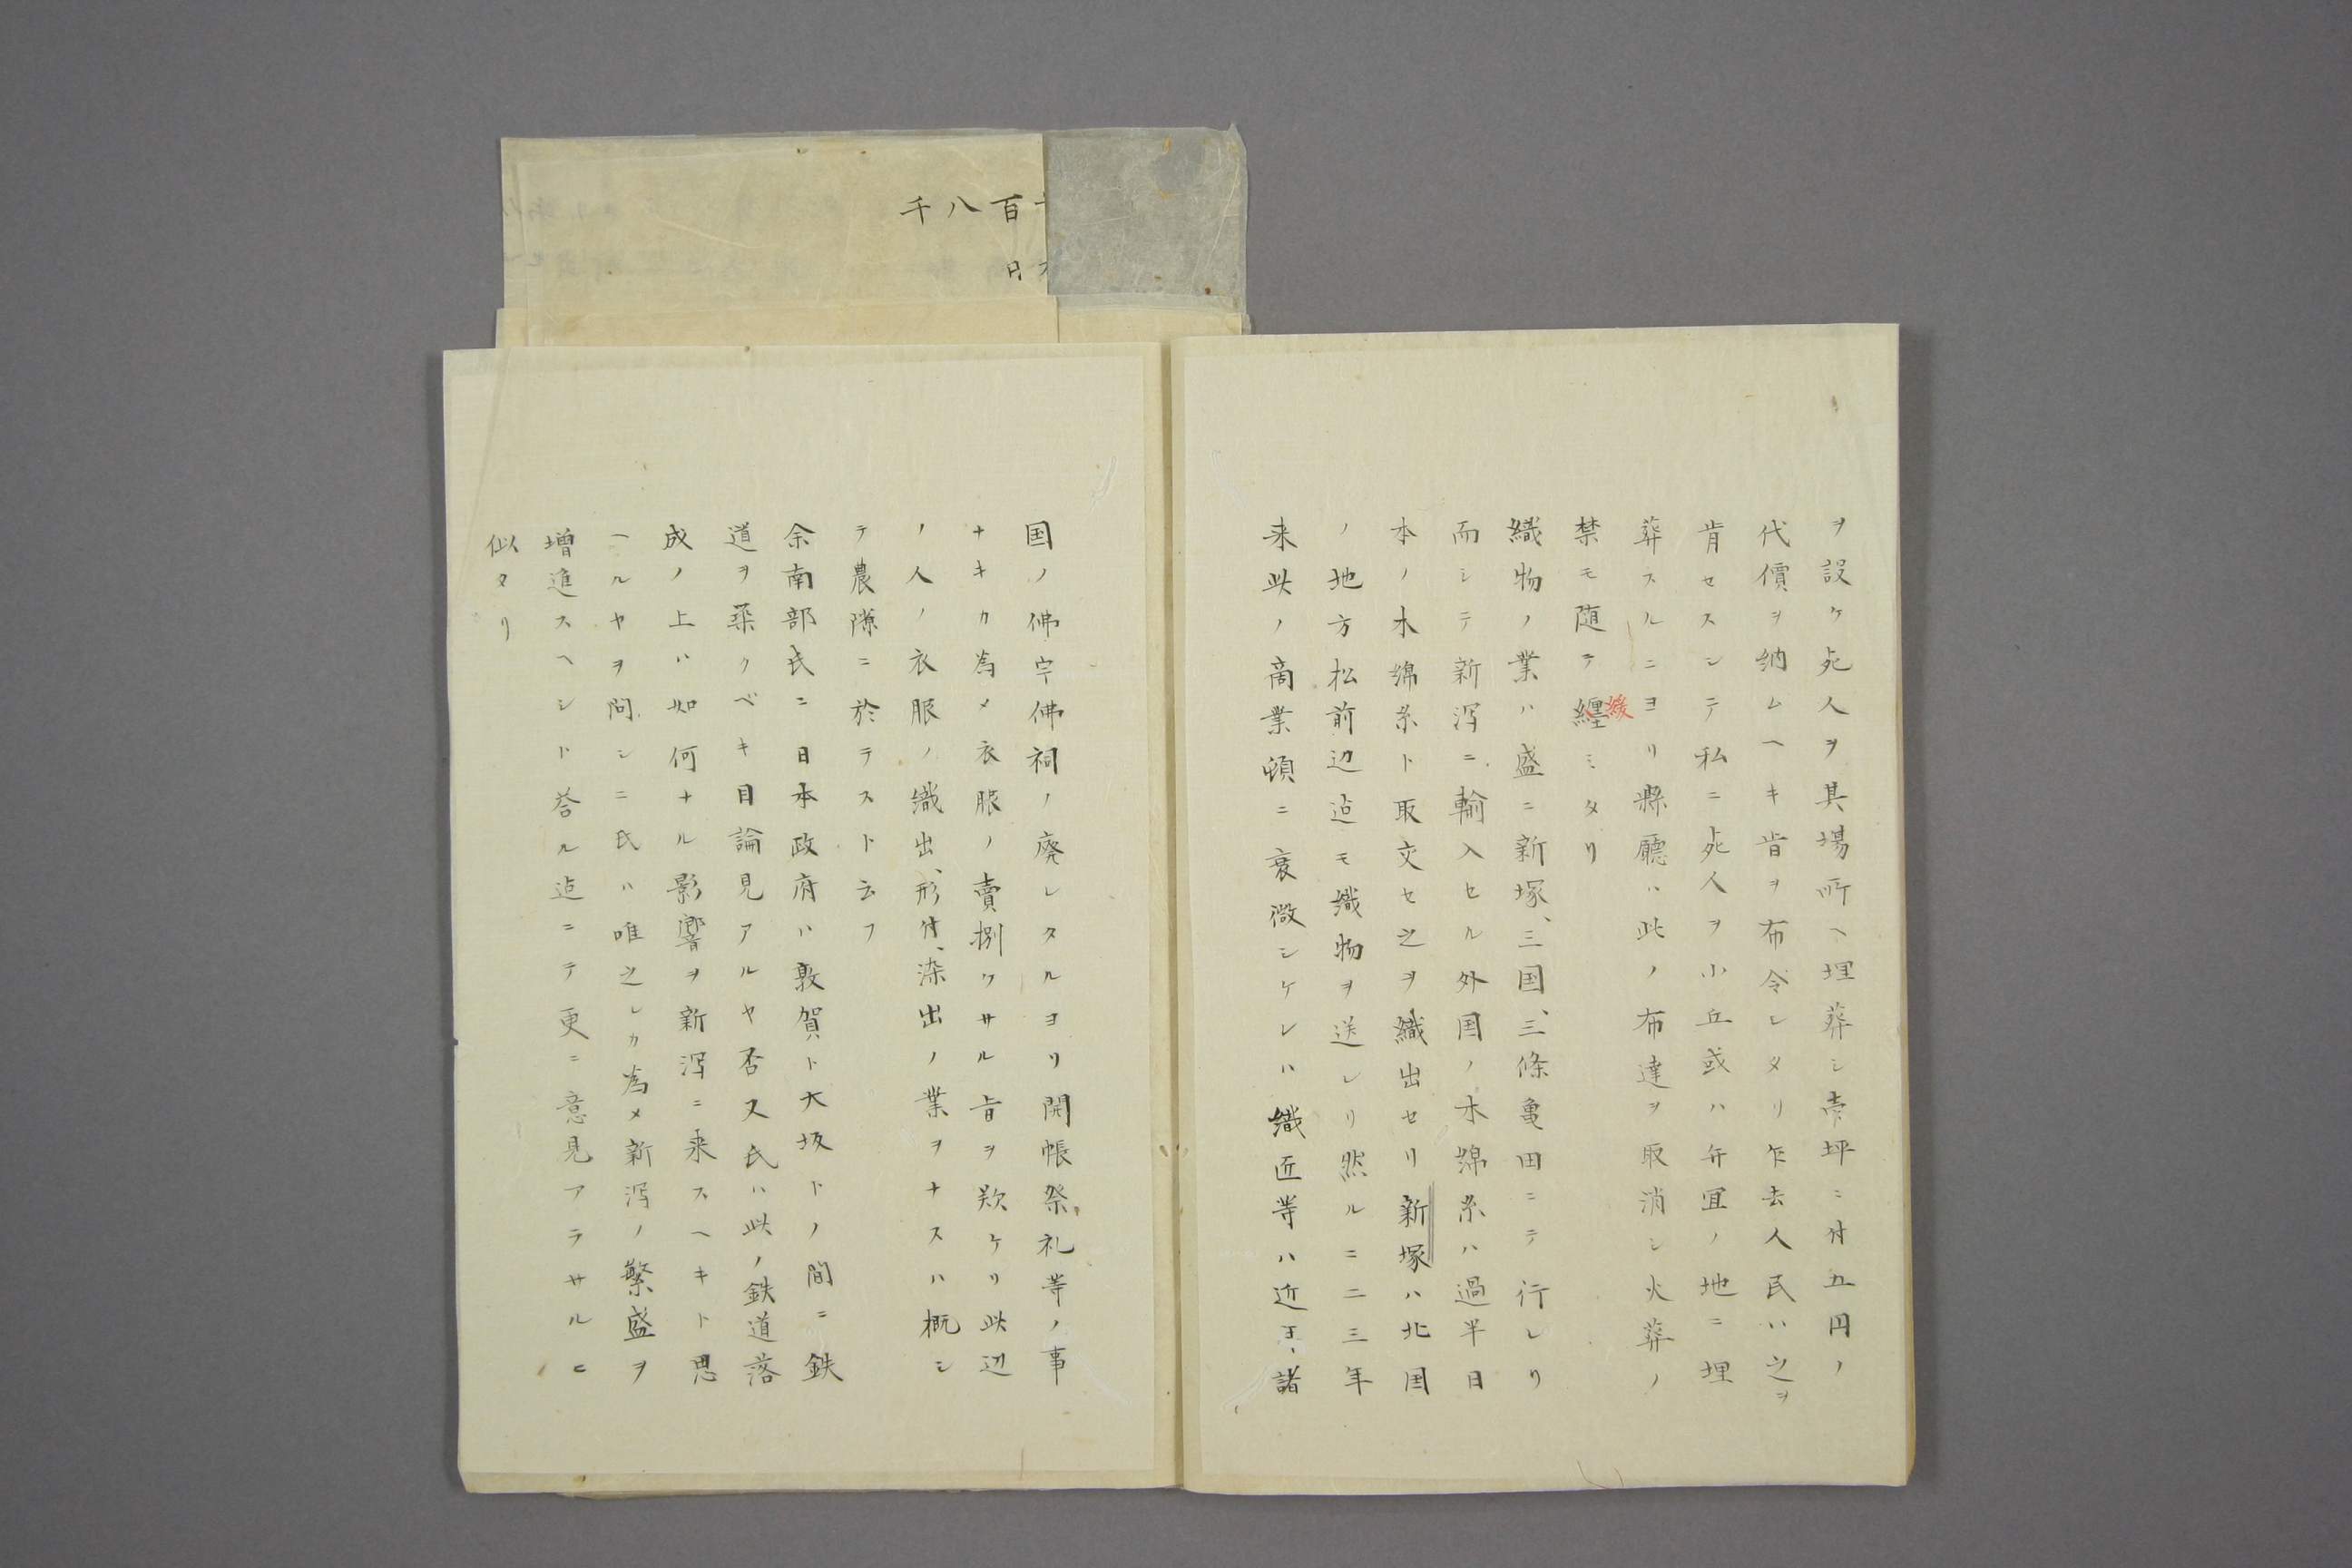 ヲ設ケ死人ヲ其場所ヘ埋葬シ壱坪ニ付五円ノ
代價ヲ納ムヘキ旨ヲ布令レタリ乍去人民ハ之ヲ
肯セスシテ私ニ死人ヲ小丘或ハ弁宜ノ地ニ埋
葬スルニヨリ縣廳ハ此ノ布達ヲ取消シ火葬ノ
禁モ随テ纏ミタリ
緩
織物ノ業ハ盛ニ新塚、三国、三條亀田ニテ行レリ
而シテ新潟ニ輸入セル外国ノ木綿糸ハ過半日
本ノ木綿糸ト取交セ之ヲ織出セリ新塚ハ北国
ノ地方松前辺迠モ織物ヲ送レリ然ルニ二三年
来此ノ商業頓ニ衰微シケレハ織匠等ハ近来、諸
国ノ佛宇佛祠ノ廃レタルヨリ開帳祭礼等ノ事
ナキカ為メ衣服ノ賣捌ケサル旨ヲ歎ケリ此辺
ノ人ノ衣服ノ織出、形付、染出ノ業ヲナスハ概シ
テ農隙ニ於テスト云フ
余南部氏ニ日本政府ハ敦賀ト大坂トノ間ニ鉄
道ヲ築クベキ目論見アルヤ否又氏ハ此ノ鉄道落
成ノ上ハ如何ナル影響ヲ新潟ニ来スヘキト思
ヘルヤヲ問シニ氏ハ唯之レカ為メ新潟ノ繁盛ヲ
増進スヘシト荅ル迠ニテ更ニ意見アラサルニ
似タリ
千八百
日